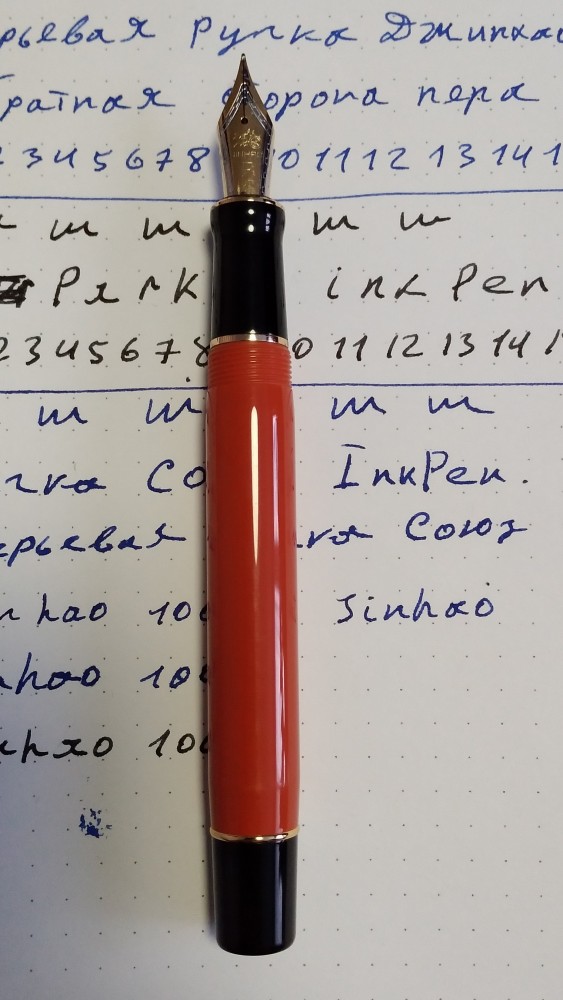 рьевая Ручка Джинхао
братная сторона пера
2 3 4 5 6 7 8 10 11 12 13 14 1
m m m m
Park ink Pen
2 3 4 5 6 7 8 0 11 12 13 14 1
m m m m
чка Со InkPen.
ерьевая чка Союз
nhao 100 Jinhao
nhao 100
nhao 100